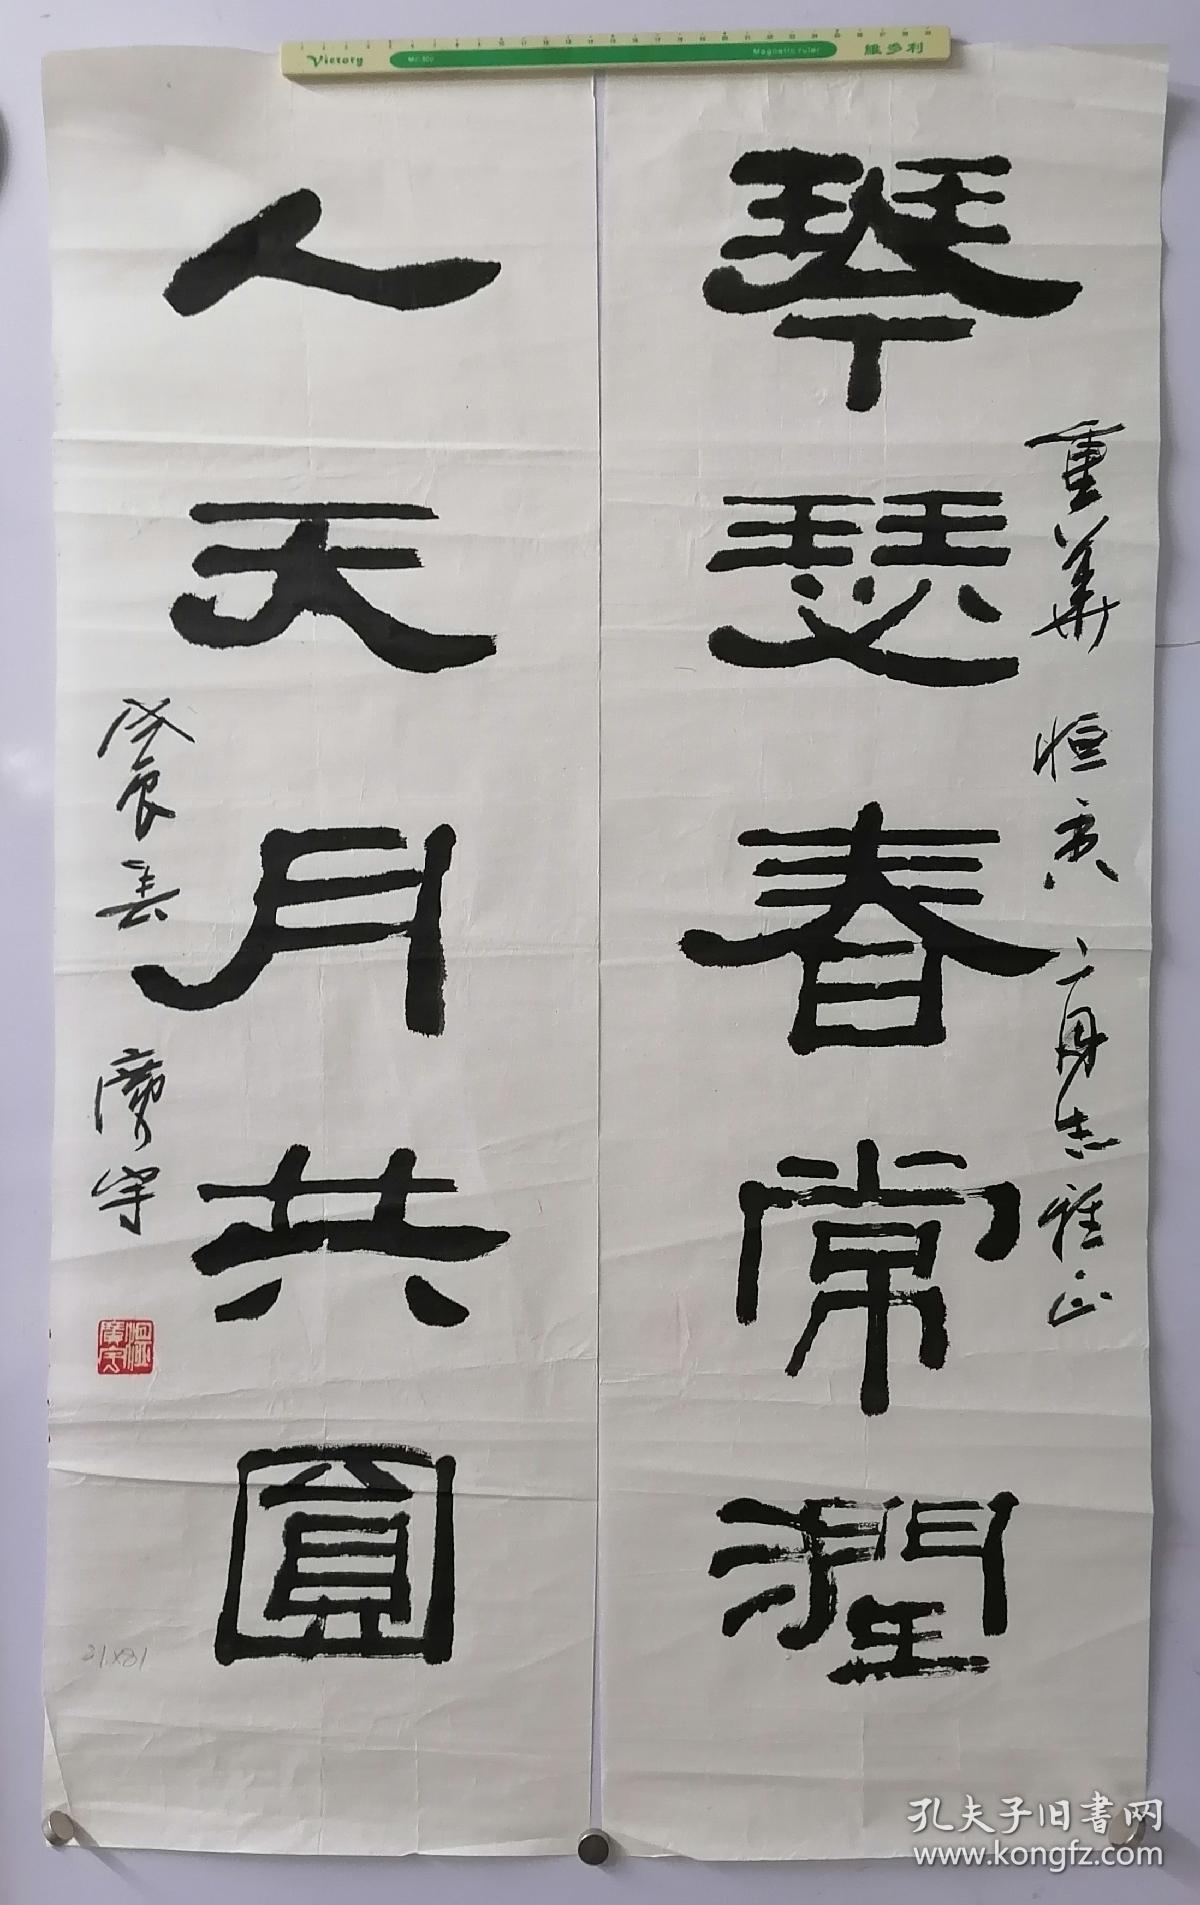 Victory
Magnetic ruler
維多利
琴瑟春常潤
重華 恒亮 二同志雅正
人天月共圓
癸 春 廣宇
21x81
孔夫子旧書网
www.kongfz.com